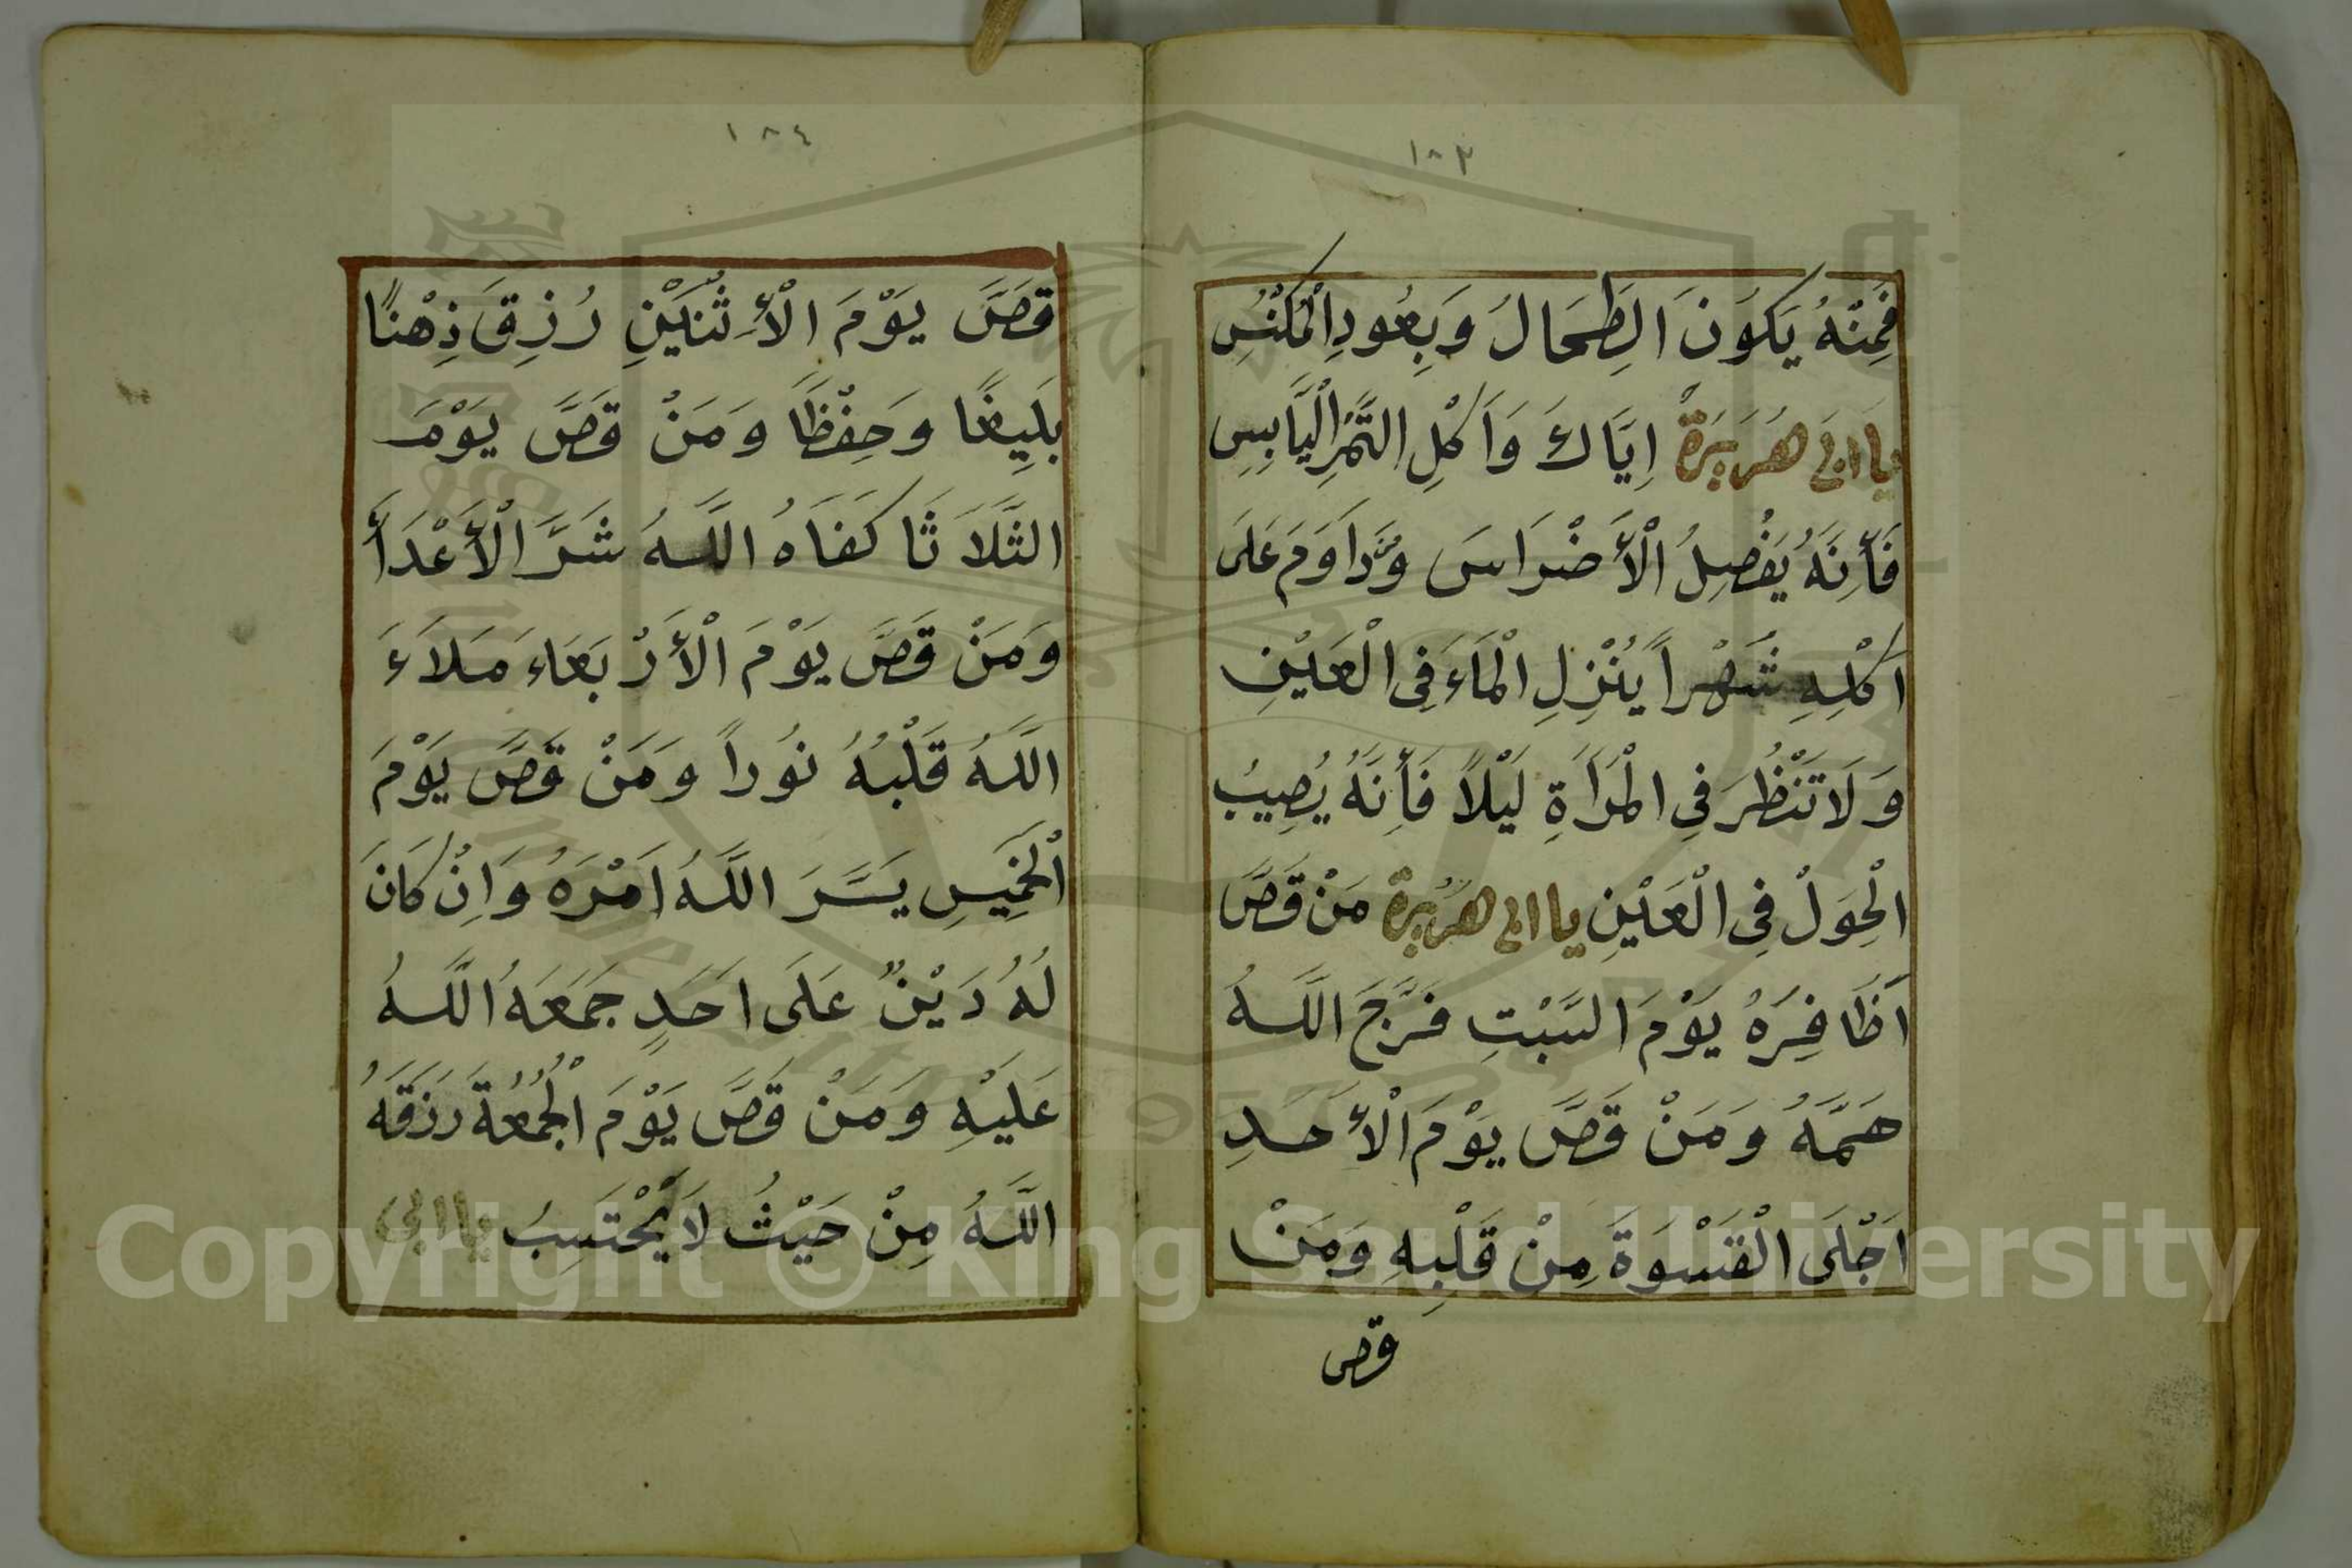 ١٨٣
فَمِنْهُ يَكُونَ الطِحَالُ وَبِعُودِ الْمَكْنُسِ
يا ابى هُرَيرَةً اِيَّاكَ وَاَكْلِ التَّمْرِ الْيَابِسِ
فَأِنَهُ يَفْصِلُ الْأَضْرَاسَ وَدَاوَمَ عَلَى
اَكْلِهِ شَهْراً يُنْزِلِ الْمَاءَ فِى الْعَيْنِ
وَلَا تَنْظُرَ فِى الْمَرَاَةِ لَيْلاً فَأِنَهُ يُصِيبُ
الْحِوَلْ فِى الْعَيْنِ يا ابى هُرَيرَة مَنْ قَصَّ
اَظَافِرَهُ يَوْمَ السَّبْتِ فَرَّجَ اللَّهُ
هَمَّهُ وَمَنْ قَصَّ يَوْمَ الْأَحَدِ
اَجْلَى الْقَسْوَةَ مِنْ قَلْبِهِ وَمَنْ
قص
١٨٤
قَصَّ يَوْمَ الْأَثْنَيْنِ رُزِقَ ذِهْنًا
بَلِيغًا وَحِفْظًا وَمَنْ قَصَّ يَوْمَ
الثَّلَاثَا كَفَاهُ اللَّهُ شَرَّ الْأَعْدَأَ
وَمَنْ قَصَّ يَوْمَ الْأَرْبَعَاءَ مَلَاءَ
اللَّهُ قَلْبُهُ نُوراً وَمَنْ قَصَّ يَوْمَ
الْخَمِيسِ يَسَّرَ اللَّهُ اَمْرَهُ وَاِنْ كَانَ
لَهُ دَيْنٌ عَلَى اَحَدٍ جَمَعَهُ اللَّهُ
عَلَيْهِ وَمَنْ قَصَّ يَوْمَ الْجُمُعَةَ رَزَقَهُ
اللَّهُ مِنْ حَيْثُ لَا يَحْتَسِبُ يا ابى
Copyright © King Saud University